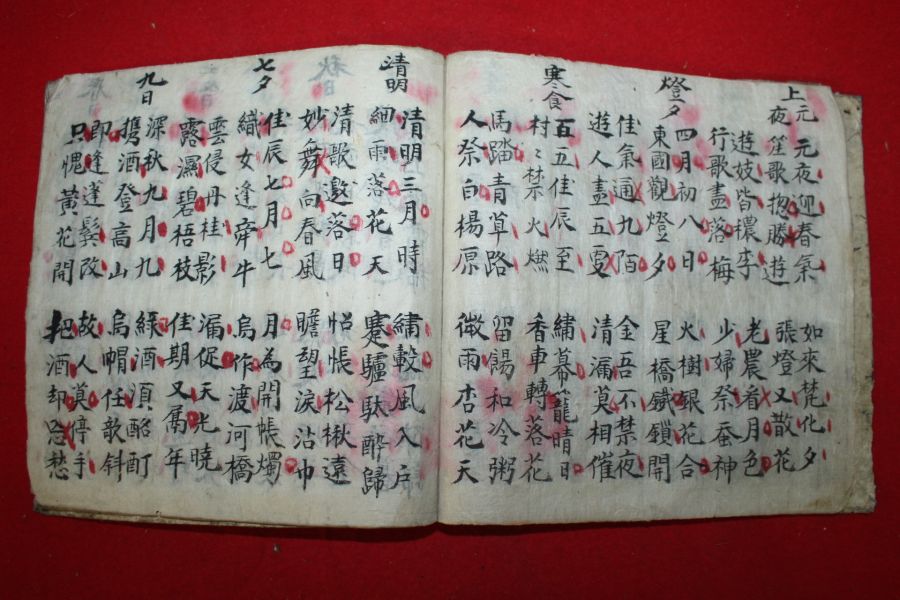 上元夜
元夜迎春氣 如來梵化夕
笙歌揔勝遊 張燈又散花
遊妓皆穠李 老農看月色
行歌盡落梅 少婦祭蚕神
燈夕
四月初八日 火樹銀花合
東國觀燈夕 星橋鐵鎖開
佳氣通九陌 金吾不禁夜
遊人盡五更 清漏莫相催
寒食
百五佳辰至 繡幕籠晴日
村々禁火燃 香車轉落花
馬踏青草路 留餳和冷粥
人祭白楊原 微雨杏花天
清明
清明三月時 繡轂風入戶
細雨落花天 蹇驢馱醉歸
清歌邀落日 怊悵松楸遠
妙舞向春風 瞻望淚沾巾
七夕
佳辰七月七 月為開帳燭
織女逢牽牛 烏作渡河橋
雲侵丹桂影 漏促天光曉
露濕碧梧枝 佳期又屬年
九日
深秋九月九 綠酒須酩酊
携酒登高山 烏帽任欹斜
即逢蓬鬢改 故人莫停手
只愧黃花開 把酒却忘愁